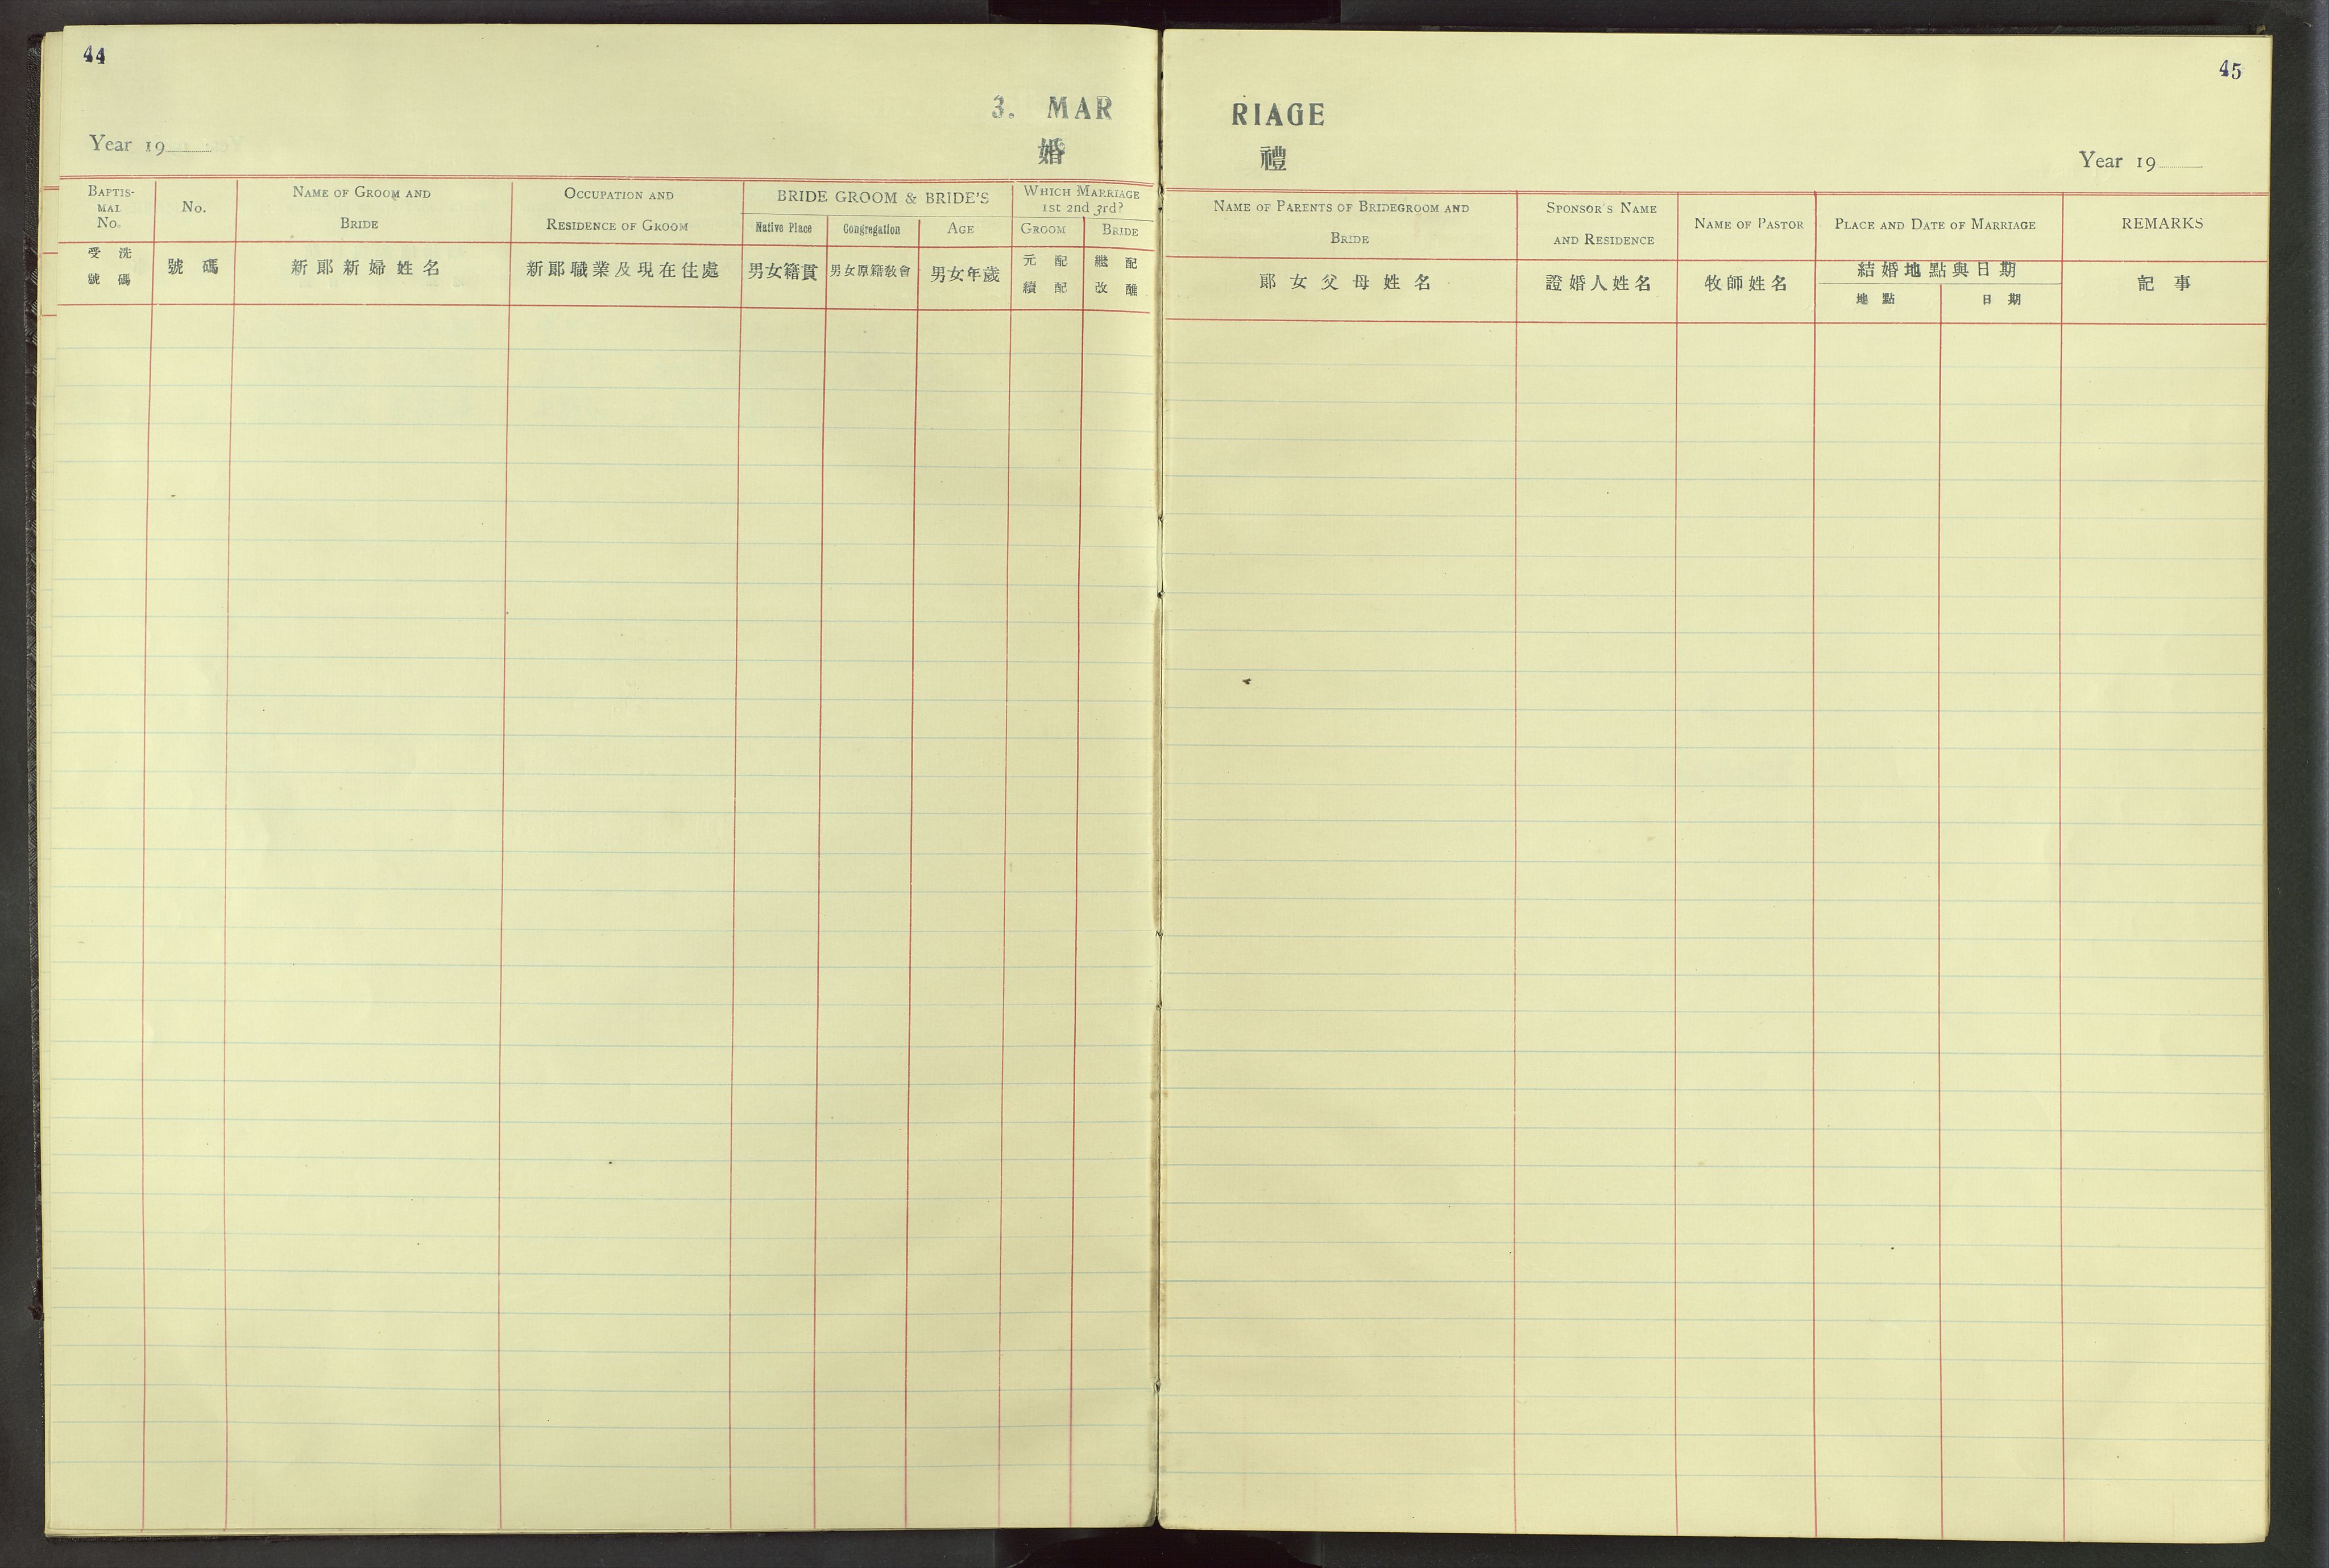 44
45
3. MAR
RIAGE
婚
禮
Year 19
Year 19
BAPTIS-
MAL
No.
No.
NAME OF GROOM AND
BRIDE
OCCUPATION AND
RESIDENCE OF GROOM
BRIDE GROOM & BRIDE'S
Native Place
Congregation
AGE
WHICH MARRIAGE
1st 2nd 3rd?
GROOM
BRIDE
受洗
號碼
號碼
新郎新婦姓名
新郎職業及現在住處
男女籍貫
男女原籍教會
男女年歲
元配
續配
繼配
改醮
NAME OF PARENTS OF BRIDEGROOM AND
BRIDE
SPONSOR'S NAME
AND RESIDENCE
NAME OF PASTOR
PLACE AND DATE OF MARRIAGE
REMARKS
郎女父母姓名
證婚人姓名
牧師姓名
結婚地點與日期
地點
日期
記事